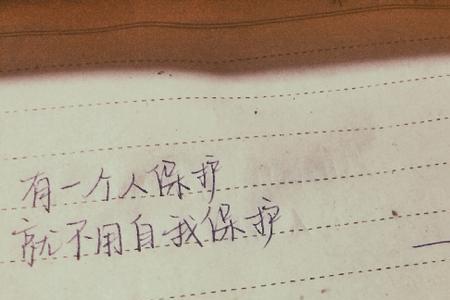 有一个人保护
就不用自我保护